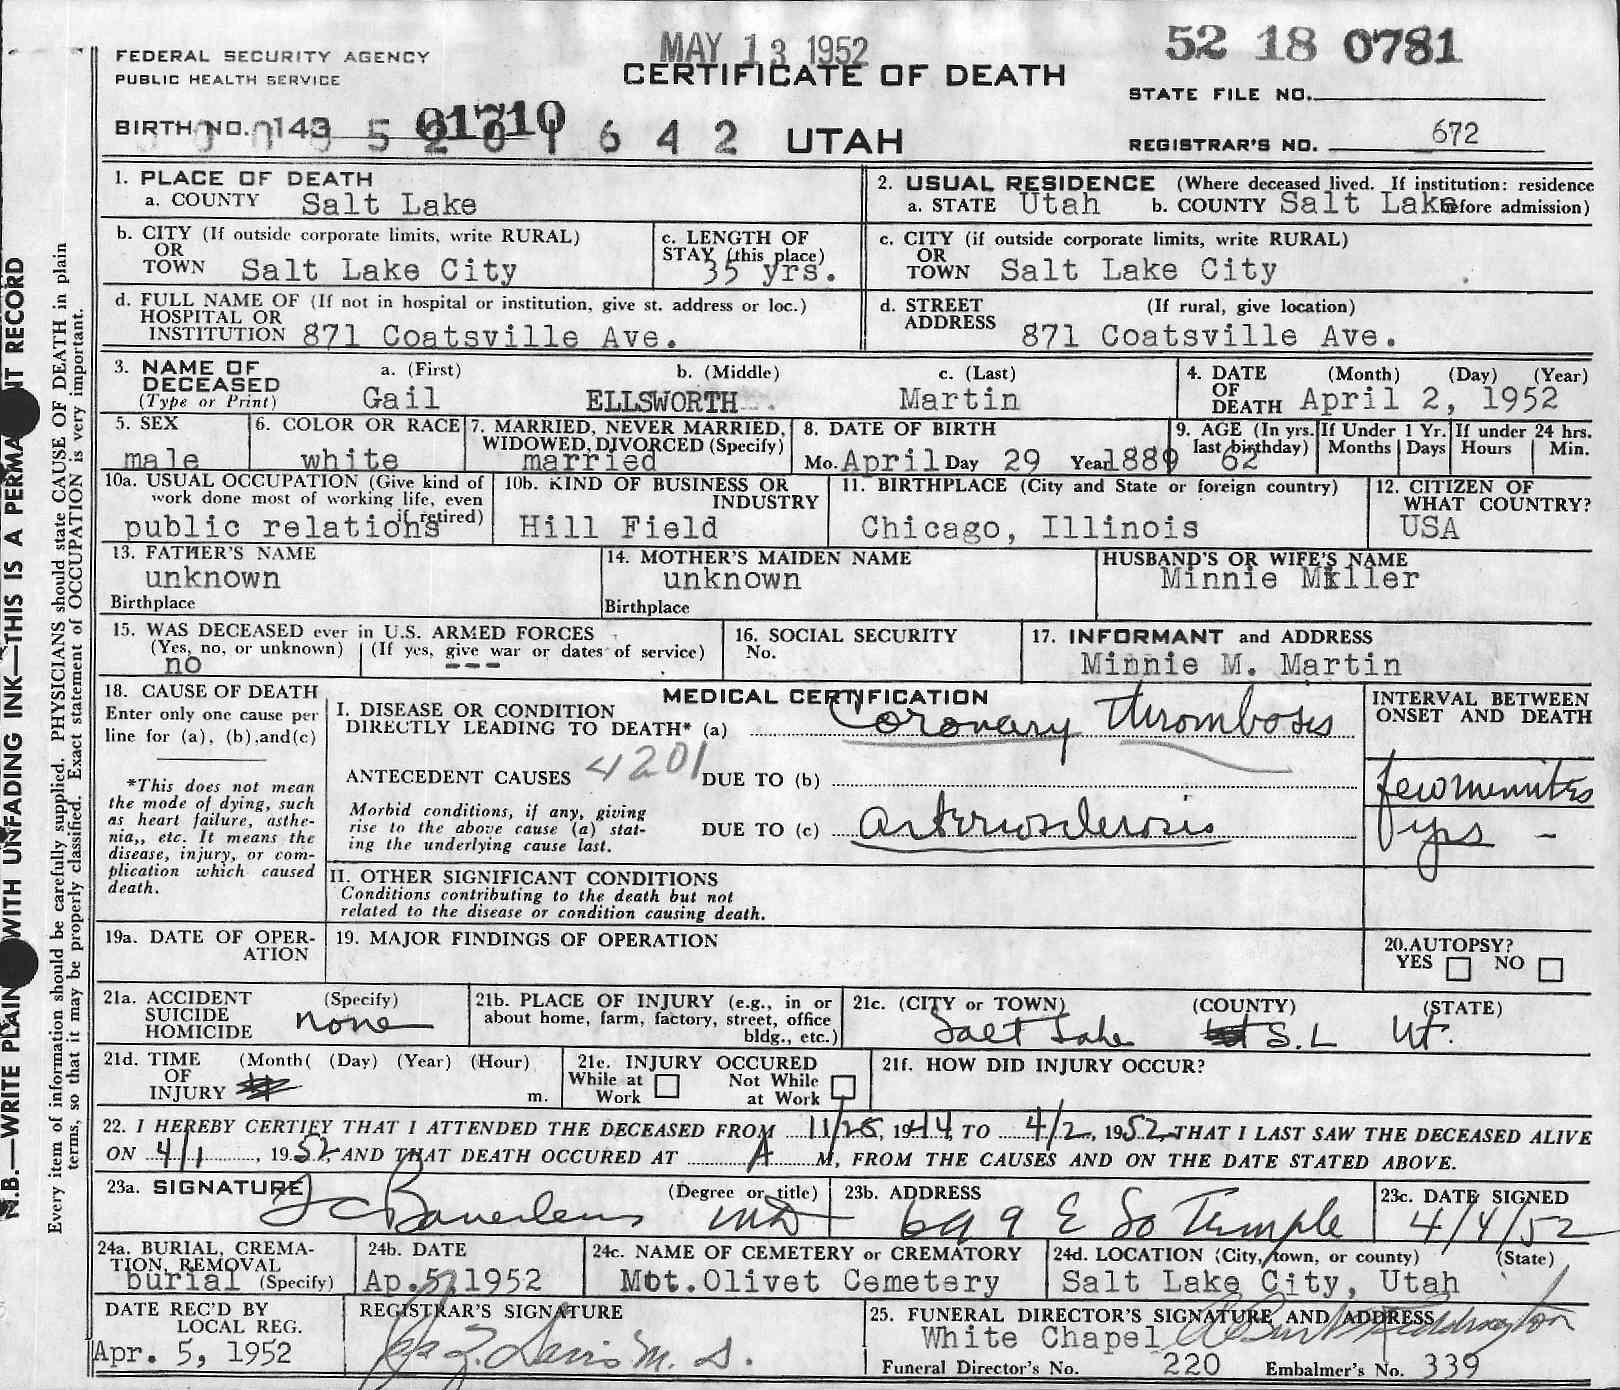 MAY 13 1952
52 18 0781
FEDERAL SECURITY AGENCY
PUBLIC HEALTH SERVICE
CERTIFICATE OF DEATH
STATE FILE NO.
BIRTH NO. 143 01710
642 UTAH
REGISTRAR'S NO. 672
N.B.—WRITE PLAIN WITH UNFADING INK—THIS IS A PERMA NT RECORD
Every item of information should be carefully supplied. PHYSICIANS should state CAUSE OF DEATH in plain
terms, so that it may be properly classified. Exact statement of OCCUPATION is very important.
1. PLACE OF DEATH
a. COUNTY Salt Lake
2. USUAL RESIDENCE (Where deceased lived. If institution: residence
a. STATE Utah b. COUNTY Salt Lake before admission)
b. CITY (If outside corporate limits, write RURAL)
OR
TOWN Salt Lake City
c. LENGTH OF
STAY (this place)
35 yrs.
c. CITY (if outside corporate limits, write RURAL)
OR
TOWN Salt Lake City
d. FULL NAME OF (If not in hospital or institution, give st. address or loc.)
HOSPITAL OR
INSTITUTION 871 Coatsville Ave.
d. STREET (If rural, give location)
ADDRESS 871 Coatsville Ave.
3. NAME OF a. (First) b. (Middle) c. (Last)
DECEASED
(Type or Print) Gail ELLSWORTH Martin
4. DATE (Month) (Day) (Year)
OF
DEATH April 2, 1952
5. SEX
male
6. COLOR OR RACE
white
7. MARRIED, NEVER MARRIED,
WIDOWED, DIVORCED (Specify)
married
8. DATE OF BIRTH
Mo. April Day 29 Year 1889
9. AGE (In yrs.
last birthday)
62
If Under 1 Yr.
Months Days
If under 24 hrs.
Hours Min.
10a. USUAL OCCUPATION (Give kind of
work done most of working life, even
if retired)
public relations
10b. KIND OF BUSINESS OR
INDUSTRY
Hill Field
11. BIRTHPLACE (City and State or foreign country)
Chicago, Illinois
12. CITIZEN OF
WHAT COUNTRY?
USA
13. FATHER'S NAME
unknown
Birthplace
14. MOTHER'S MAIDEN NAME
unknown
Birthplace
HUSBAND'S OR WIFE'S NAME
Minnie Miller
15. WAS DECEASED ever in U.S. ARMED FORCES
(Yes, no, or unknown) (If yes, give war or dates of service)
no ---
16. SOCIAL SECURITY
No.
17. INFORMANT and ADDRESS
Minnie M. Martin
18. CAUSE OF DEATH
Enter only one cause per
line for (a), (b),and(c)
*This does not mean
the mode of dying, such
as heart failure, asthe-
nia,, etc. It means the
disease, injury, or com-
plication which caused
death.
MEDICAL CERTIFICATION
I. DISEASE OR CONDITION
DIRECTLY LEADING TO DEATH* (a) Coronary thrombosis
ANTECEDENT CAUSES 4201 DUE TO (b)
Morbid conditions, if any, giving
rise to the above cause (a) stat-
ing the underlying cause last.
DUE TO (c) arteriosclerosis
INTERVAL BETWEEN
ONSET AND DEATH
few minutes
yrs -
II. OTHER SIGNIFICANT CONDITIONS
Conditions contributing to the death but not
related to the disease or condition causing death.
19a. DATE OF OPER-
ATION
19. MAJOR FINDINGS OF OPERATION
20.AUTOPSY?
YES NO
21a. ACCIDENT (Specify)
SUICIDE
HOMICIDE none
21b. PLACE OF INJURY (e.g., in or
about home, farm, factory, street, office
bldg., etc.)
21c. (CITY or TOWN) (COUNTY) (STATE)
Salt Lake S.L Ut.
21d. TIME (Month( (Day) (Year) (Hour)
OF
INJURY m.
21e. INJURY OCCURED
While at Not While
Work at Work
21f. HOW DID INJURY OCCUR?
22. I HEREBY CERTIFY THAT I ATTENDED THE DECEASED FROM 11/28, 1944, TO 4/2, 1952 THAT I LAST SAW THE DECEASED ALIVE
ON 4/1, 1952, AND THAT DEATH OCCURED AT A M, FROM THE CAUSES AND ON THE DATE STATED ABOVE.
23a. SIGNATURE (Degree or title)
MD
23b. ADDRESS
699 E So Temple
23c. DATE SIGNED
4/4/52
24a. BURIAL, CREMA-
TION, REMOVAL
burial (Specify)
24b. DATE
Ap.5, 1952
24c. NAME OF CEMETERY or CREMATORY
Mt.Olivet Cemetery
24d. LOCATION (City, town, or county) (State)
Salt Lake City, Utah
DATE REC'D BY
LOCAL REG.
Apr. 5, 1952
REGISTRAR'S SIGNATURE
25. FUNERAL DIRECTOR'S SIGNATURE AND ADDRESS
White Chapel
Funeral Director's No. 220 Embalmer's No. 339